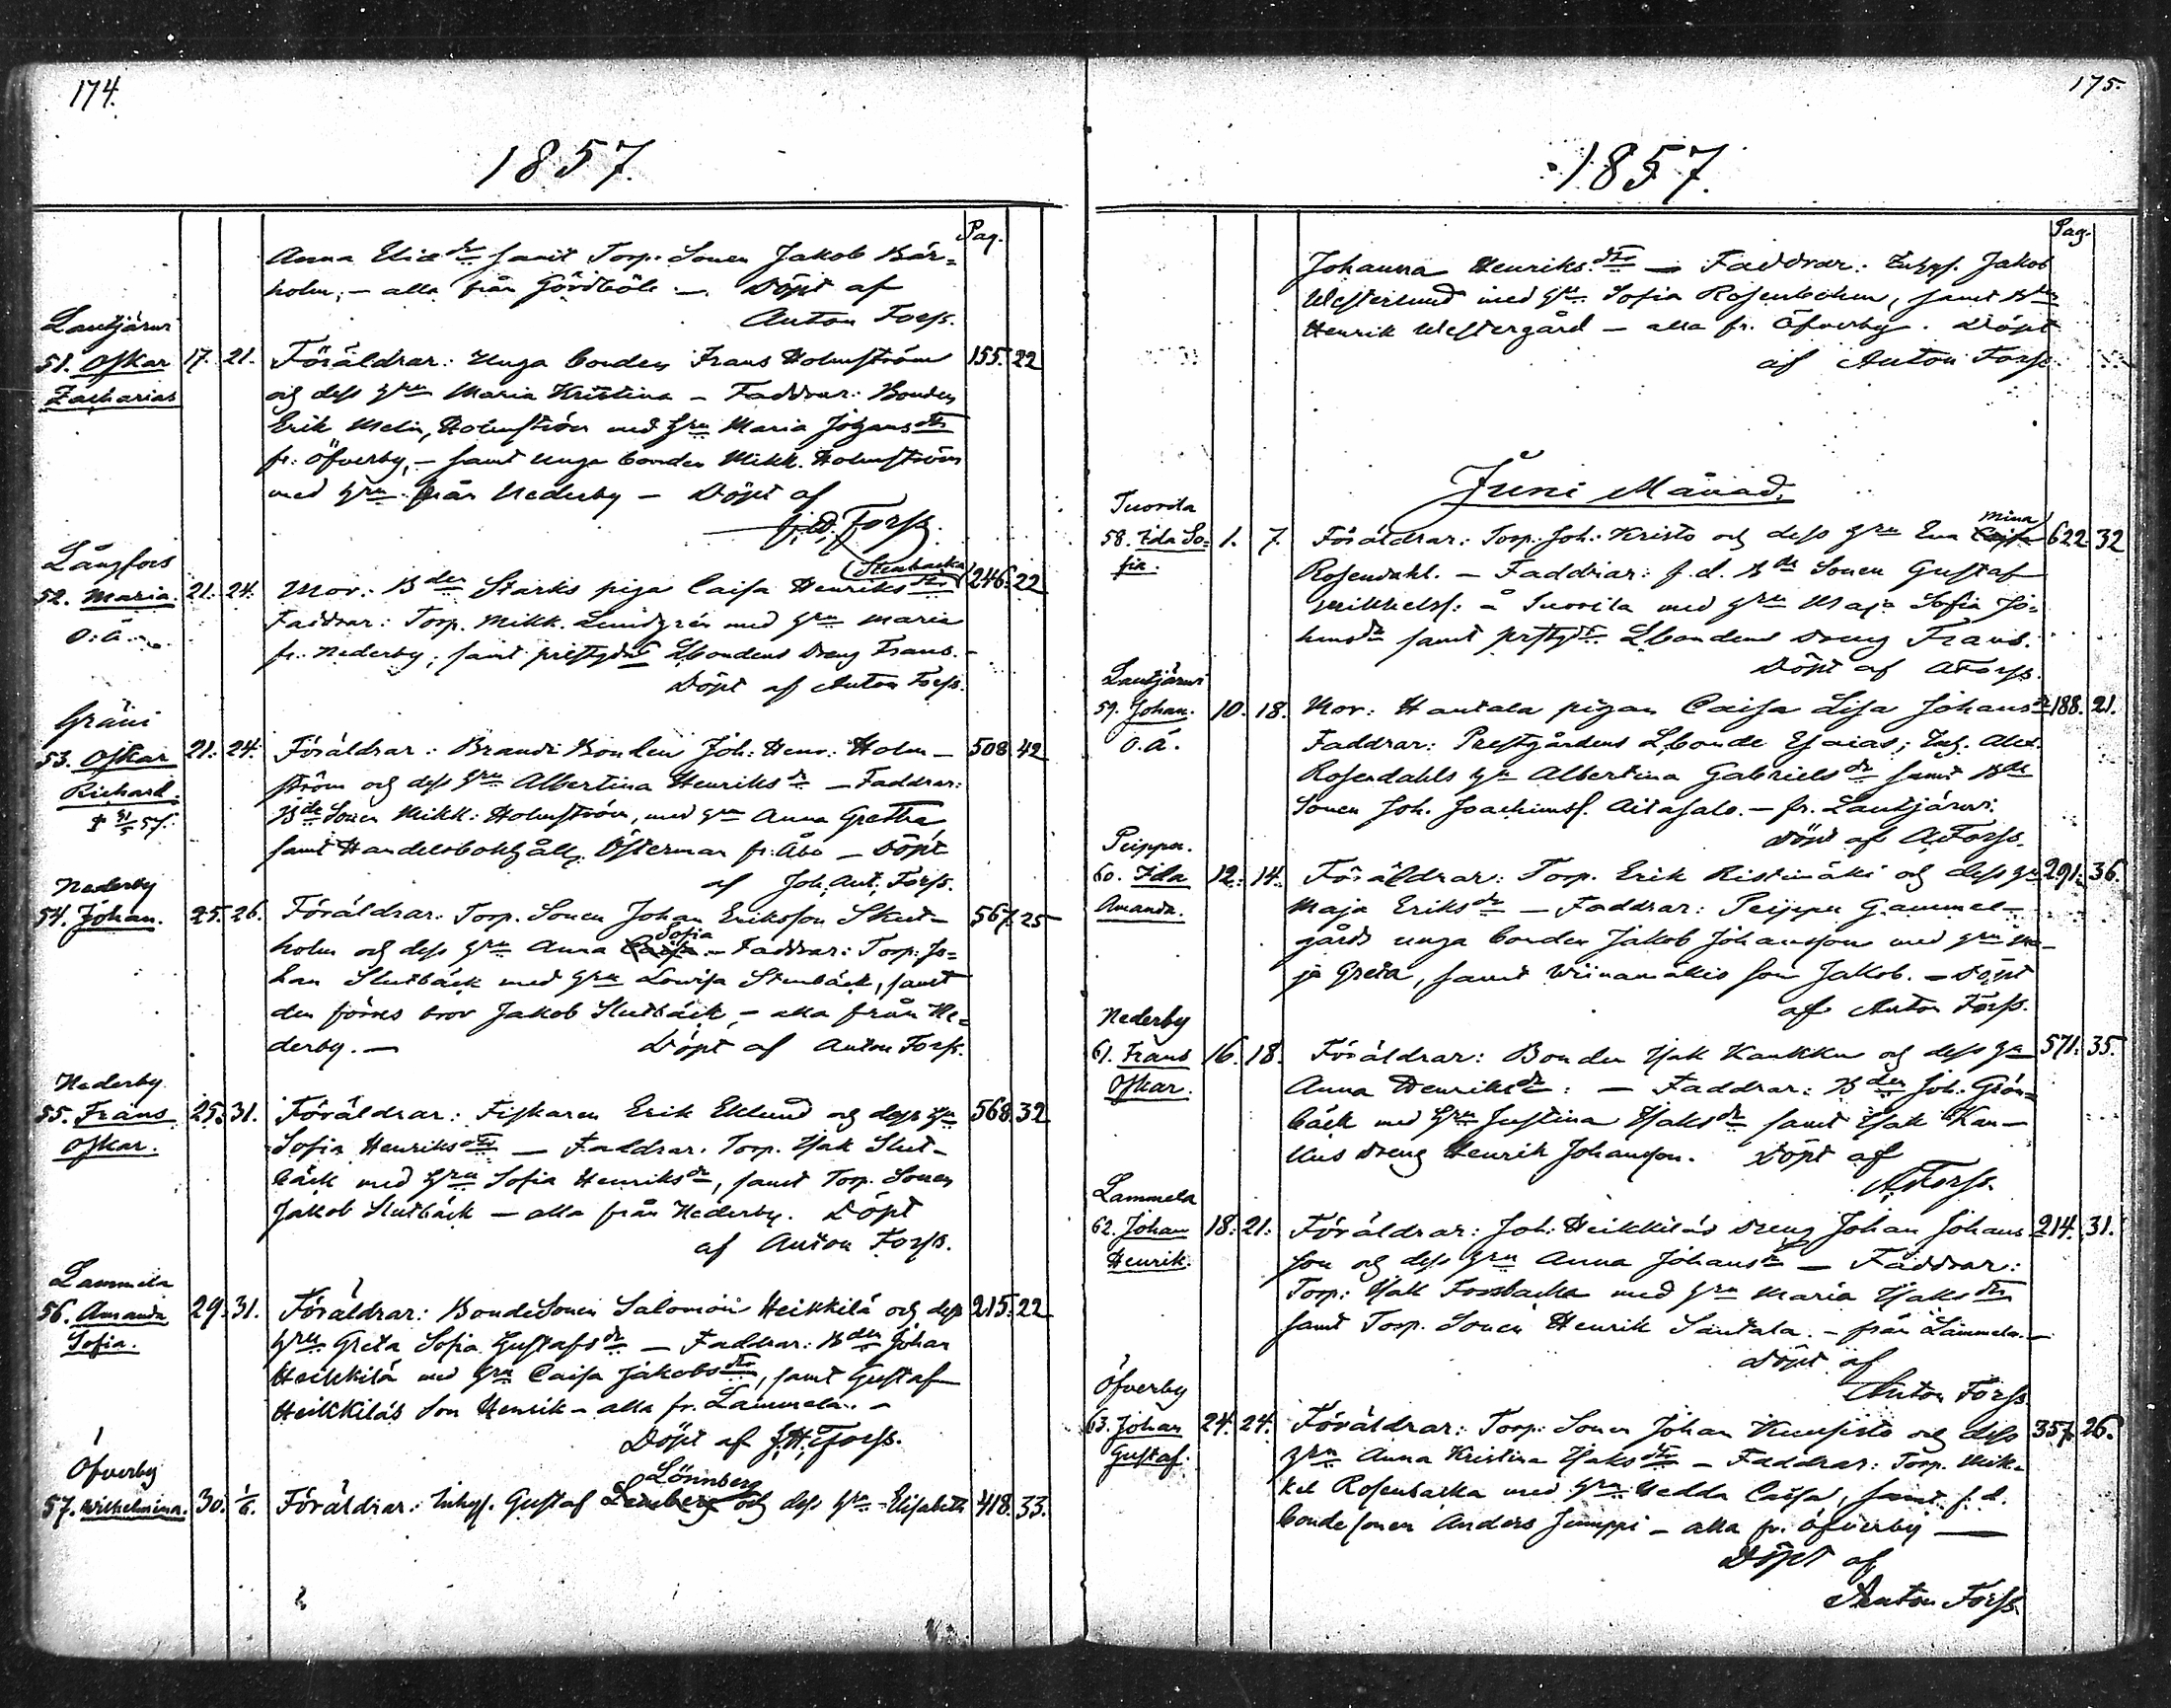 174.
1857.
Pag.
Anna Elis dr samt Torp. Sonen Jakob Bär=
holm, – alla från Gördböle –. Döpt af
Anton Forss.
Lautjärwi
51. Oskar 17. 21. Föräldrar: Unga bonden Frans Holmström 155. 22
Zacharias och dess hru Maria Kristina – Faddrar: Bonden
Erik Melin, Holmström med hru Maria Johans dtr
fr. Öfverby, – samt unga bonden Mikk. Holmström
med hru från Nederby – Döpt af
Forss.
Långfors Stenbacka
52. Maria. 21. 24. Mor: Bden Starks piga Caisa Henriks dtr 246. 22
o. ä. Faddrar: Torp. Mikk. Lindgrén med hru Maria
fr. Nederby, samt prestgds Lbondens dreng Frans. –
Döpt af Anton Forss.
Gräni
53. Oskar 21. 24. Föräldrar: Brandi Bonden Joh: Henr: Holm– 508 42
Richard. ström och dess hru Albertina Henriks dr – Faddrar:
† 31/5 57. Bde Sonen Mikk: Holmström, med hru Anna Gretha
samt Handelsbokhåll. Österman fr. Åbo – Döpt
af Joh. Ant. Forss.
Nederby
54. Johan. 25. 26. Föräldrar: Torp. Sonen Johan Eriksson Skut– 567. 25
Sofia
holm och dess hru Anna Caisa – Faddrar: Torp. Jo=
han Slutbäck med hru Lovisa Stenbäck, samt
den förres bror Jakob Slutbäck, – alla från Ne=
derby. – Döpt af Anton Forss.
Nederby
55. Frans 25. 31. Föräldrar: Fiskaren Erik Eklund och dess hru 568 32
Oskar. Sofia Henriks dtr – Faddrar. Torp. Isak Slut–
bäck med hru Sofia Henriks dr, samt Torp. Sonen
Jakob Slutbäck – alla från Nederby. Döpt
af Anton Forss.
Lammela
56. Amanda 29. 31. Föräldrar: BondeSonen Salomon Heikkilä och dess 215. 22
Sofia. hru Greta Sofia Gustafs dr – Faddrar: Bden Johan
Heikkilä med hru Caisa Jakobs dtr, samt Gustaf
Heikkiläs Son Henrik – alla fr. Lammela. –
Döpt af Forss.
Öfverby Lönnberg
57. Wilhelmina. 30. 1/6. Föräldrar: Inhys. Gustaf och dess hru Elisabeth 418. 33.
175.
1857.
Pag.
Johanna Henriks dtr – Faddrar: Inhys. Jakob
Westerlund med hru Sofia Rosenbohm, samt Bden
Henrik Westergård – alla fr. Öfverby. Döpt
af Anton Forss.
Juni Månad.
Tuorila Mina
58. Ida So= 1. 7. Föräldrar: Torp. Joh: Kristo och dess hru Eva Caisa 622 32
fia. Rosendahl. – Faddrar: f. d. Bde Sonen Gustaf
Mikkelss: å Tuorila med hru Maja Sofia Jo=
hans dr samt prstgds Lbondens dreng Frans.
Döpt af AForss.
Lautjärwi
59. Johan. 10. 18. Mor: Hantala pigan Caisa Lisa Johans dr 188. 21.
o. ä. Faddrar: Prestgårdens Lbonde Esaias; Inh. Alex.
Rosendahls hru Albertina Gabriels dr samt Bde
Sonen Joh. Joachimss. Aitasalo. – fr. Lautjärwi.
Döpt af AForss.
Peippu.
60. Ida 12. 14. Föräldrar: Torp. Erik Ristimäki och dess hru 291. 36.
Amanda. Maja Eriks dr – Faddrar: Peippu Gammel–
gårds unga bonden Jakob Johansson med hru Ma–
ja Greta, samt Wiinamäkis son Jakob. – Döpt
af Anton Forss.
Nederby
61. Frans 16. 18. Föräldrar: Bonden Isak Kankku och dess hru 571. 35.
Oskar. Anna Henriks dr: – Faddrar: Bden Joh. Grön=
bäck med hru Justina Isaks dr samt Isak Kan–
kus dreng Henrik Johansson. Döpt af
AForss.
Lammela
62. Johan 18. 21. Föräldrar: Joh: Heikkiläs dreng Johan Johans 214. 31.
Henrik. son och dess hru Anna Johans dr – Faddrar:
Torp: Isak Forsbacka med hru Maria Isaks dtr
samt Torp. Sonen Henrik Santala. – från Lammela. –
Döpt af
Anton Forss
Öfverby
63. Johan 24. 24. Föräldrar: Torp: Sonen Johan Kuusisto och dess 357. 26.
Gustaf. hru Anna Kristina Isaks dtr – Faddrar: Torp. Mik–
kel Rosenbacka med hru Hedda Caisa, samt f. d.
bondesonen Anders Jumppi – alla fr. Öfverby –
Döpt af
Anton Forss